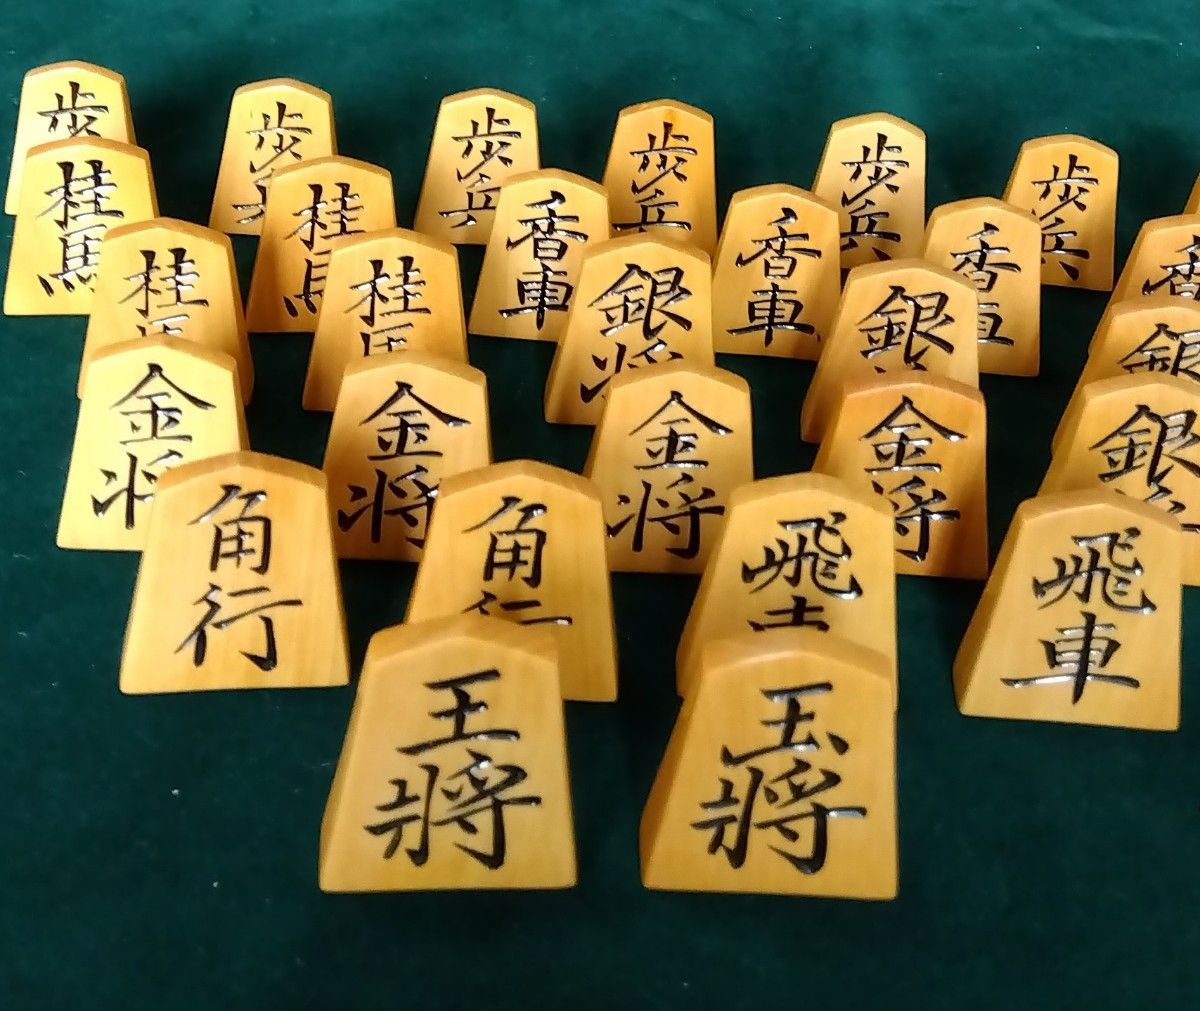 歩
歩兵
歩兵
歩兵
歩兵
歩兵
桂馬
桂馬
香車
香車
香車
香
桂馬
桂馬
銀将
銀
銀
金将
金将
金将
金将
銀
角行
角行
飛車
飛車
王将
玉将